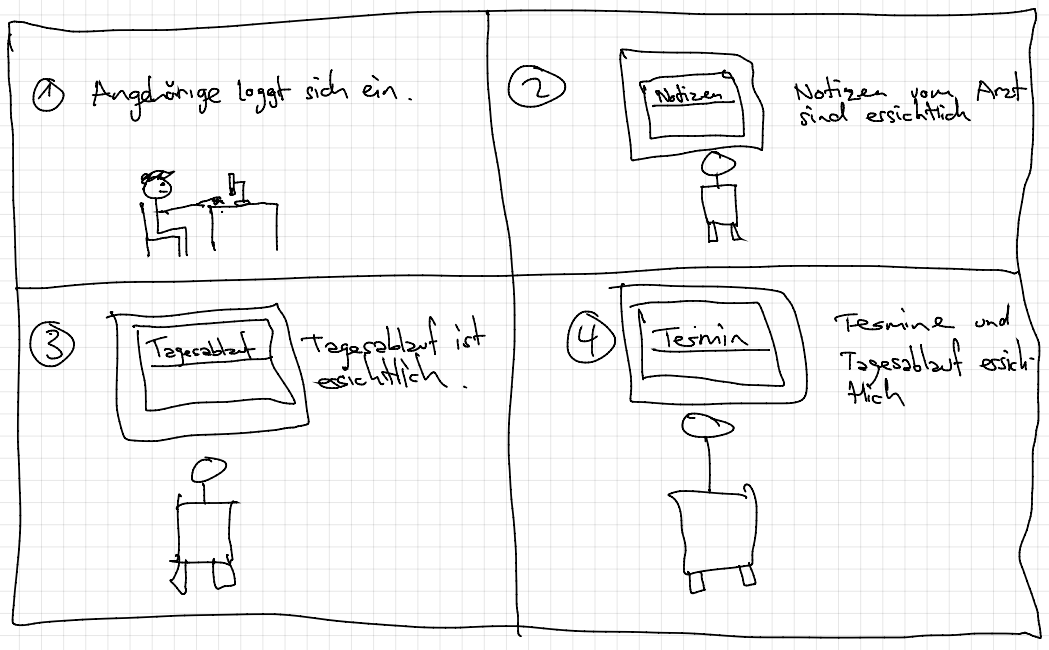 1 Angehörige loggt sich ein.
2
Notizen
Notizen vom Arzt
sind ersichtlich
3
Tagesablauf
Tagesablauf ist
ersichtlich.
4
Termin
Termine und
Tagesablauf ersich-
tlich